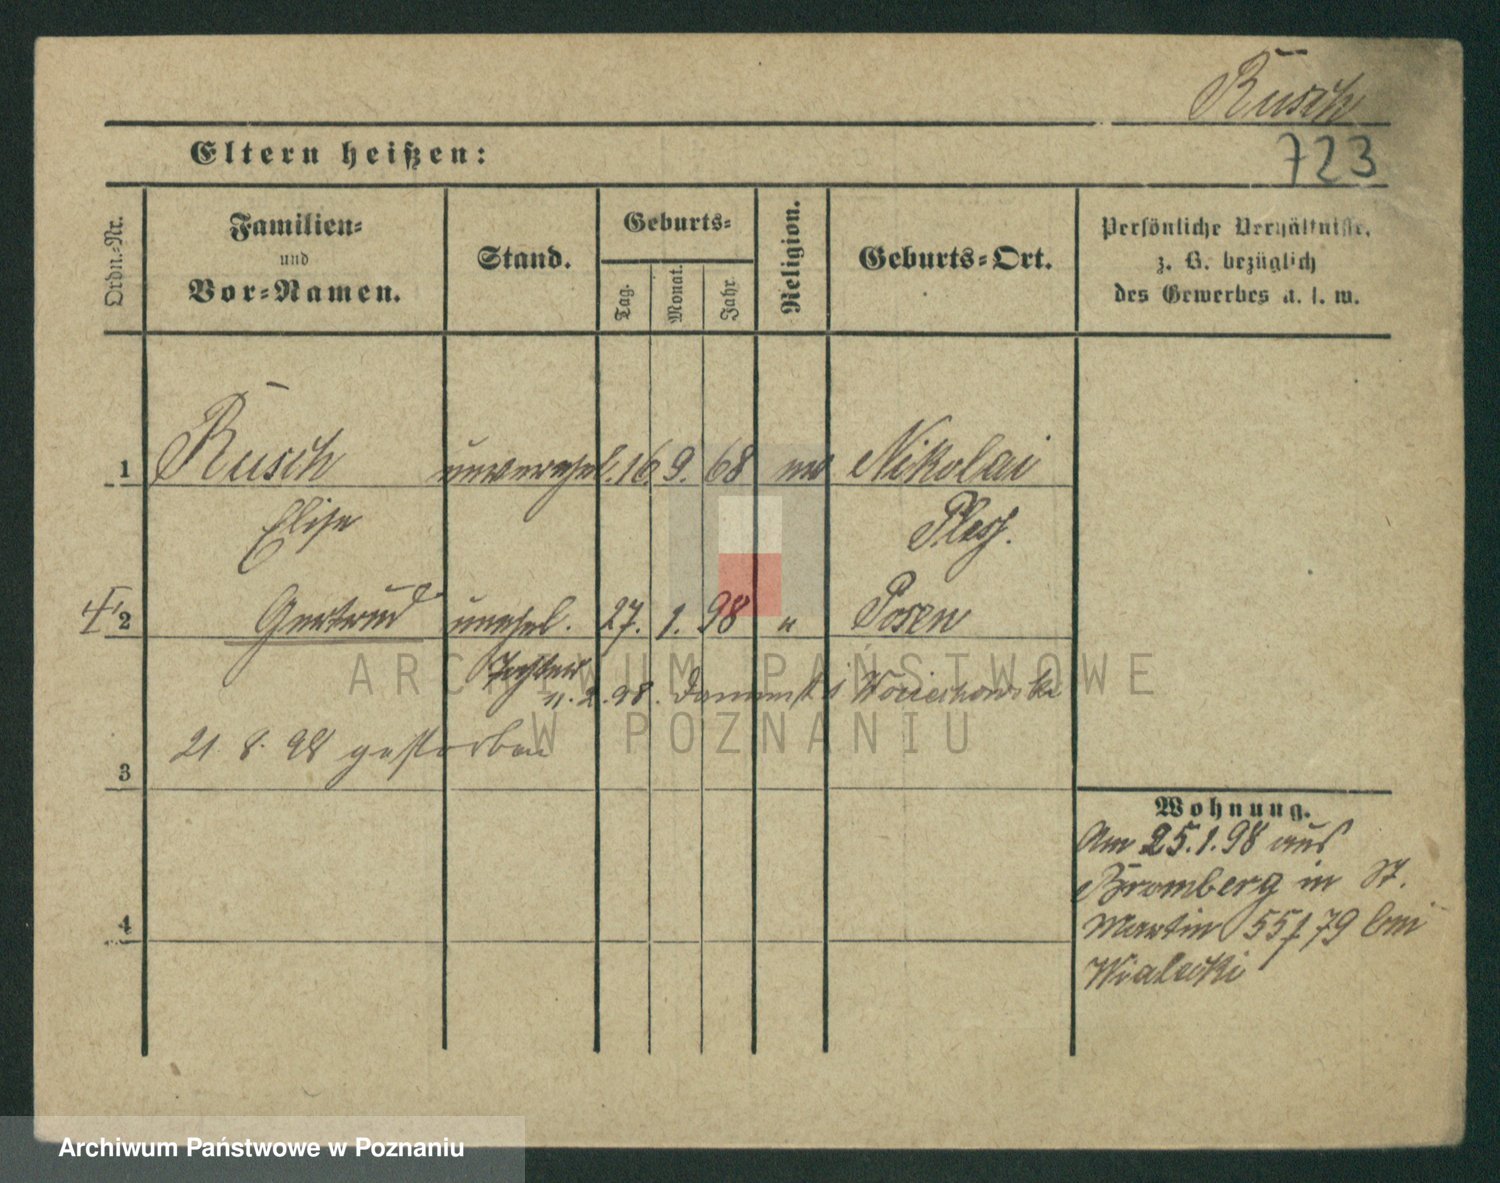 Rusch
723
Eltern heißen:
Ordn.-Nr.
Familien-
und
Vor-Namen.
Stand.
Geburts-
Tag.
Monat.
Jahr.
Religion.
Geburts-Ort.
Persönliche Verhältnisse,
z. B. bezüglich
des Gewerbes u. s. w.
1 Rusch unverehel. 16 9. 68 ev Nikolai
Elise Pless.
2 Gertrud unehel. 27. 1. 98 " Posen
Tochter
11. 2. 98. Dammstr Woiciechowska
21 8. 98 gestorben
3
Wohnung.
Am 25.1.98 aus
Bromberg in St.
Martin 55 79 bei
Wialecki
4
ARCHIWUM PAŃSTWOWE
W POZNANIU
Archiwum Państwowe w Poznaniu